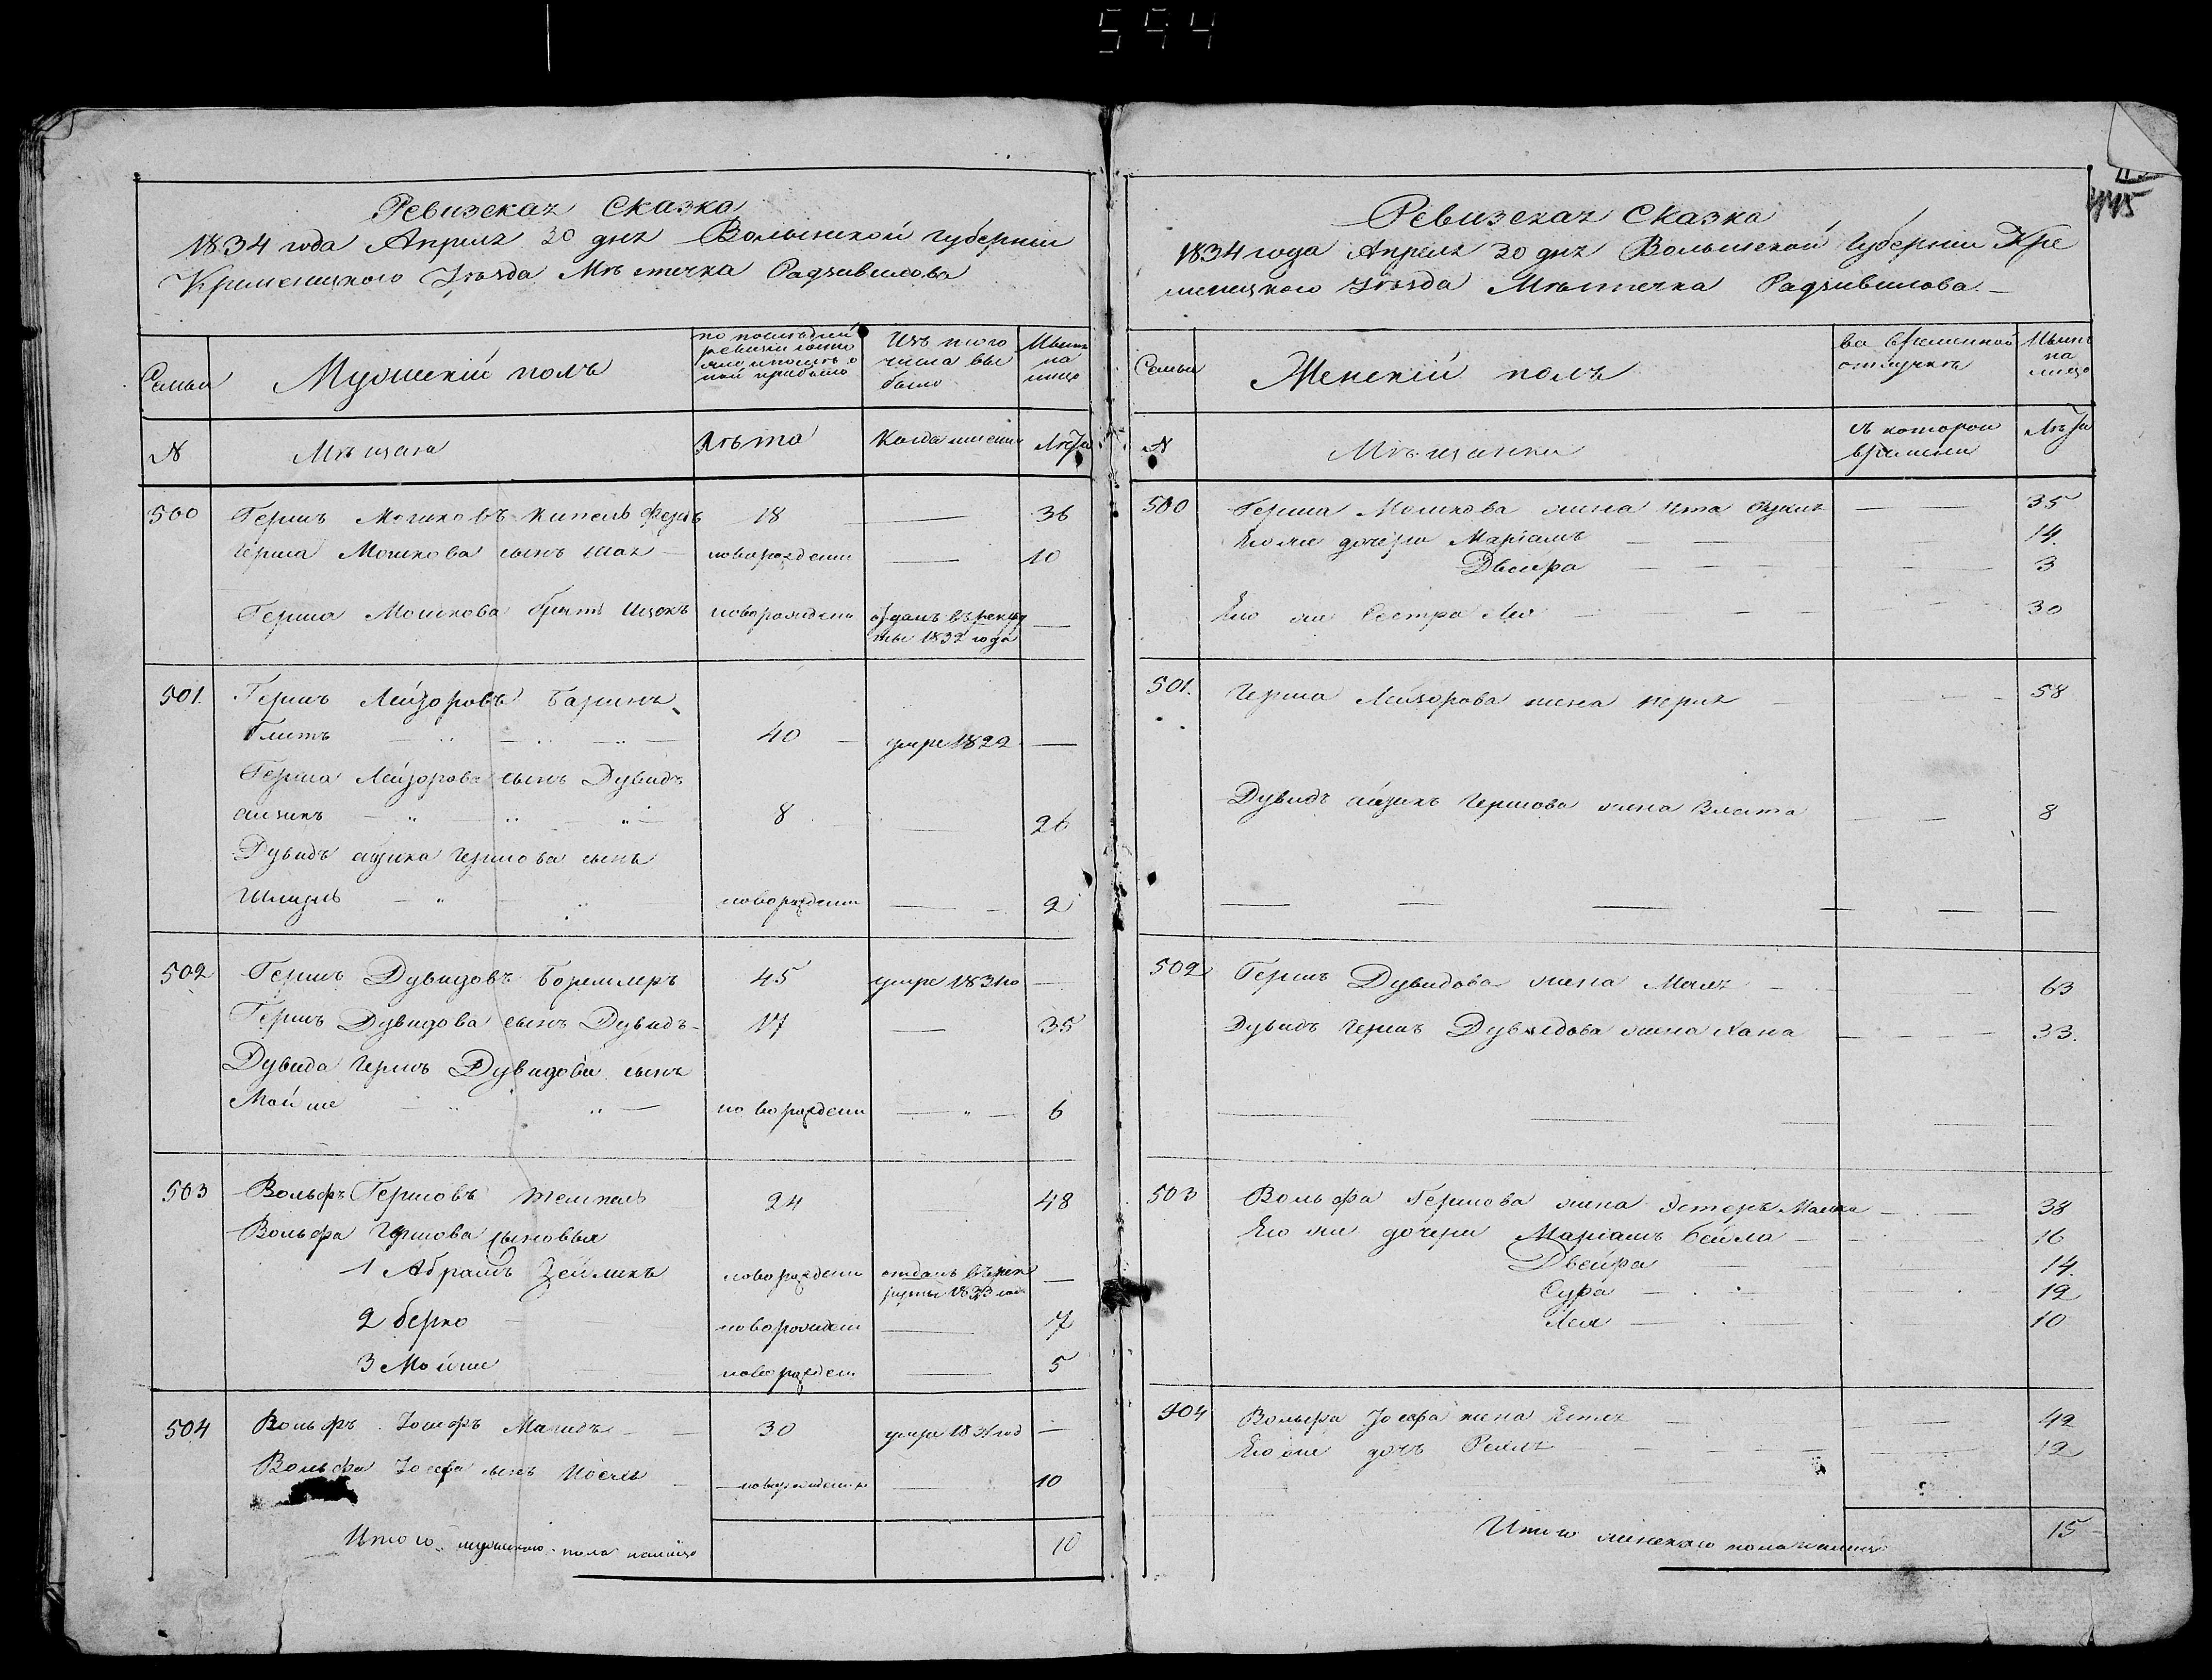 594
Ревизская Сказка
1834 года Апреля 30 дня Волынской губернии
Кременецкого Уѣзда Мѣстечка Радзивилова
Семьи
Мужеский полъ
по послѣдней
ревизии состо
яло и послѣ о
ной прибыло
Изъ того
числа вы
было
Нынѣ
на
лицо
№
Мѣщане
Лѣта
Когда именно
Лѣта
500
Гершъ Мошковъ 18 — 36
Герша Мошкова сынъ новорожденн — 10
Герша Мошкова братъ Ицокъ новорожденн отданъ въ рекру
ты 1832 года —
501. Гершъ Лейзоровъ
40 — умре 1822 —
Герша Лейзорова сынъ Дувидъ
айзикъ 8 — 26
Дувидъ айзика Гершова сынъ
новорожденн — 2
502 Гершъ Дувидовъ 45 умре 1831го —
Гершъ Дувидова сынъ Дувидъ 17 — 35
Дувида Гершъ Дувидова сынъ
Мойше новорожденн — 6
503 Вольфъ Гершовъ 24 — 48
Вольфа Гершова сыновья
1 Абрамъ Зейликъ новорожденн отданъ въ рек
руты 1833 года —
2 берко новорожденн — 7
3 Мойше новорожденн — 5
504 Вольфъ Иосифъ 30 умре 1831 год —
Вольфа Иосефа сынъ новорожденн — 10
Итого мужеского пола налицо 10
445
Ревизская Сказка
1834 года Апреля 30 дня Волынской Губернии Кре
менецкого Уѣзда Мѣстечка Радзивилова. —
Семьи
Женский полъ
во временной
отлучкѣ
Нынѣ
на
лицо
№
Мѣщанки
съ которого
времени
Лѣта
500 Герша Мошкова жена — — 35
Его же дочери Мариамъ — — 14.
Двейра — — — 3
Его же Сестра Лея — — 30
501. Герша Лейзорова жена — 58
Дувидъ айзикъ Гершова жена Злата — — 8
— — — — — —
502 Гершъ Дувидова жена — 63
Дувидъ Гершъ Дувидова жена Хана — — 33.
503 Вольфа Гершова жена Эстеръ Малка — 38
Его же дочери Мариамъ бейла — 16
Двейра — 14.
Сура — 12
Лея — 10
504 Вольфа Иосефа жена — 42
Его же дочь Рейля — 12
Итого женского пола налицо 15